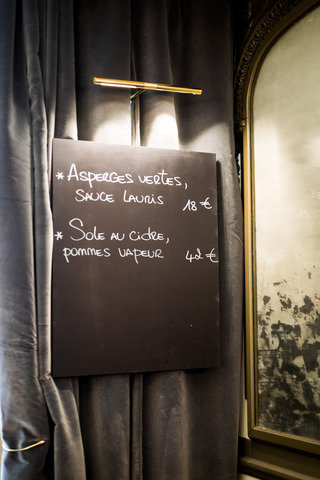 * Asperges vertes,
sauce Lauris 18 €
* Sole au cidre,
pommes vapeur 42 €